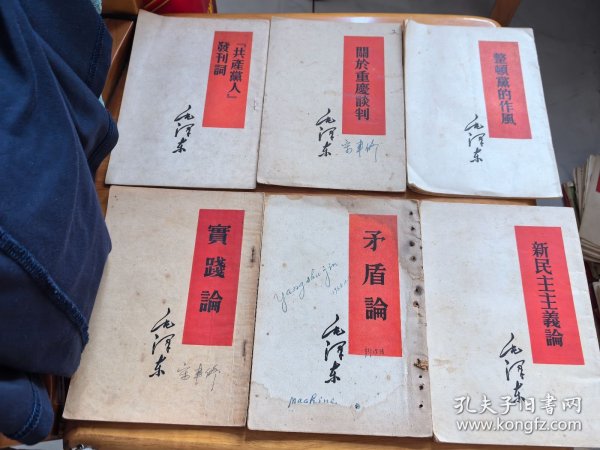 「共產黨人」
發刊詞
毛澤东
關於重慶談判
毛澤东
整頓黨的作風
毛澤东
實踐論
毛澤东
矛盾論
yangshujin
毛澤东
machine
新民主主義論
毛澤东
孔夫子旧书网
www.kongfz.com